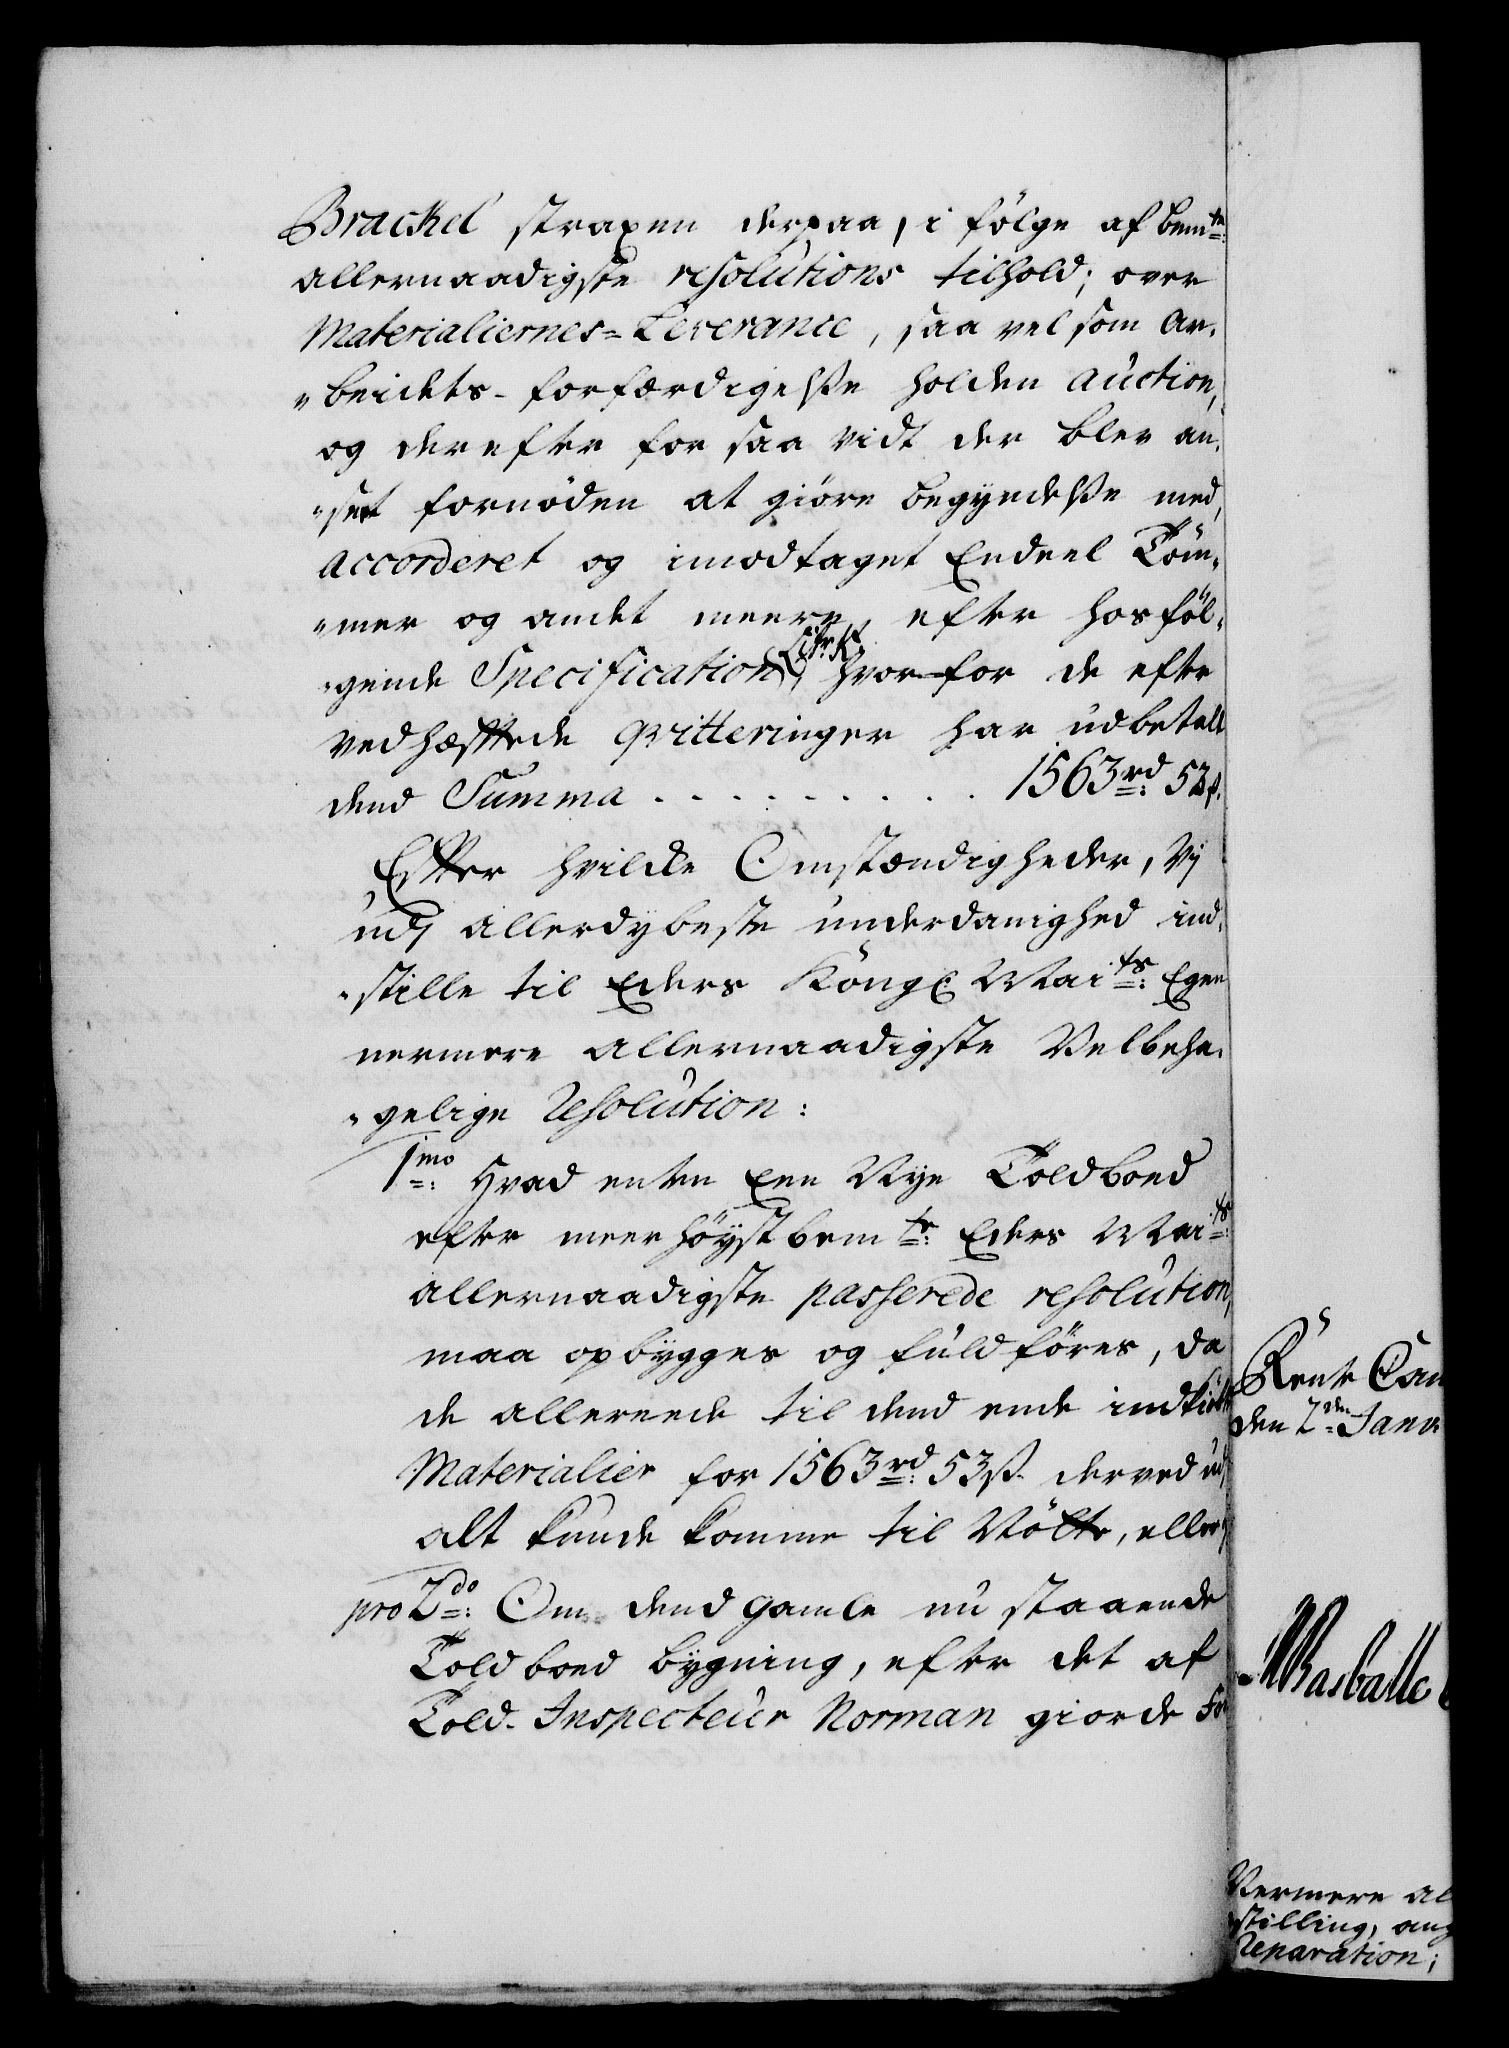 Brackel straxen derpaa, i følge af bemte:
allernaadigste resolutions tilhold; over
Materialiernes=Leverance, saa vel som Ar-
"beidets-forfærdigelße holden auction,
og derefter for saa vidt der blev an-
"set fornöden at giöre begyndelße med,
accorderet og imodtaget Endeel Töm-
"mer og andet meere, efter hosföl-
"gende Specification Litr: K. hvorfor de efter
vedhæfftede qvitteringer har udbetalt
dend Summa . . . . . . . . . 1563rd: 53ß.
Effter hvilcke Omstændigheder, Vj
udj allerdybeste underdanighed ind-
"stille til Eders Kongl: Maits: Egen
nermere allernaadigste Velbeha-
"gelige Resolution:
1mo: Hvad enten Een Nye Toldboed
efter meerhöystbemte: Eders Maits:
allernaadigste passerede resolution,
maa opbygges og fuldföres, da
de allereede til dend ende indkiöbte
Materialier for 1563rd: 53ß. derved ud,
alt kunde komme til Nötte, eller
pro 2do: Om dend gamle nu staaende
Toldboed bygning, efter det af
Told-Inspecteur Norman giorde
Rente Cam
den 2den Janv:
Nermere al
stilling, ang
Reparation;